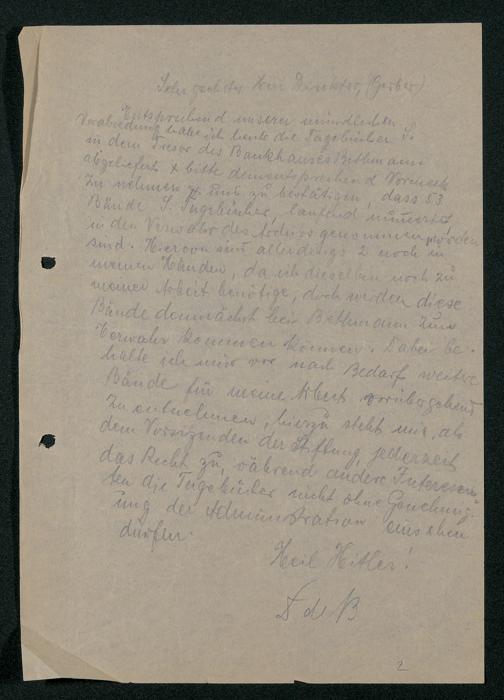 Sehr geehrter Herr Direktor, (Gerber)
Entsprechend unserer mündlichen
Verabredung habe ich heute die Tagebücher S.
in dem Tresor des Bankhauses Bethmann
abgeliefert & bitte dementsprechend Vormerk
zu nehmen & mir zu bestätigen, dass 53
Bände S. Tagebücher, laufend numeriert,
in den Verwahr des Archivs genommen worden
sind. Hiervon sind allerdings 2 noch in
meinen Händen, da ich dieselben noch zu
meiner Arbeit benötige, doch werden diese
Bände demnächst bei Bethmann zum
Verwahr kommen können. Dabei be-
halte ich mir vor nach Bedarf weitere
Bände für meine Arbeit vorübergehend
zu entnehmen, hierzu steht mir, als
dem Vorsitzenden der Stiftung, jederzeit
das Recht zu, während andere Interessen-
ten die Tagebücher nicht ohne Genehmig-
ung der Administration einsehen
dürfen.
Heil Hitler!
F de B
2